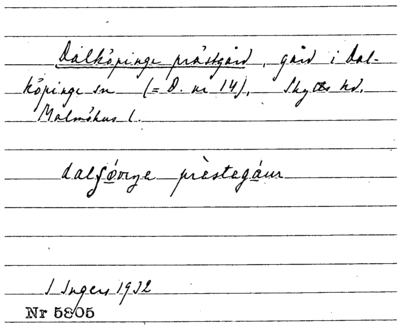 Dalköpinge prästgård, gård i Dal-
köpinge sn (= D. nr 14), Skytts hd,
Malmöhus l.
prèstegáur
I Ingers 1932
Nr 5805